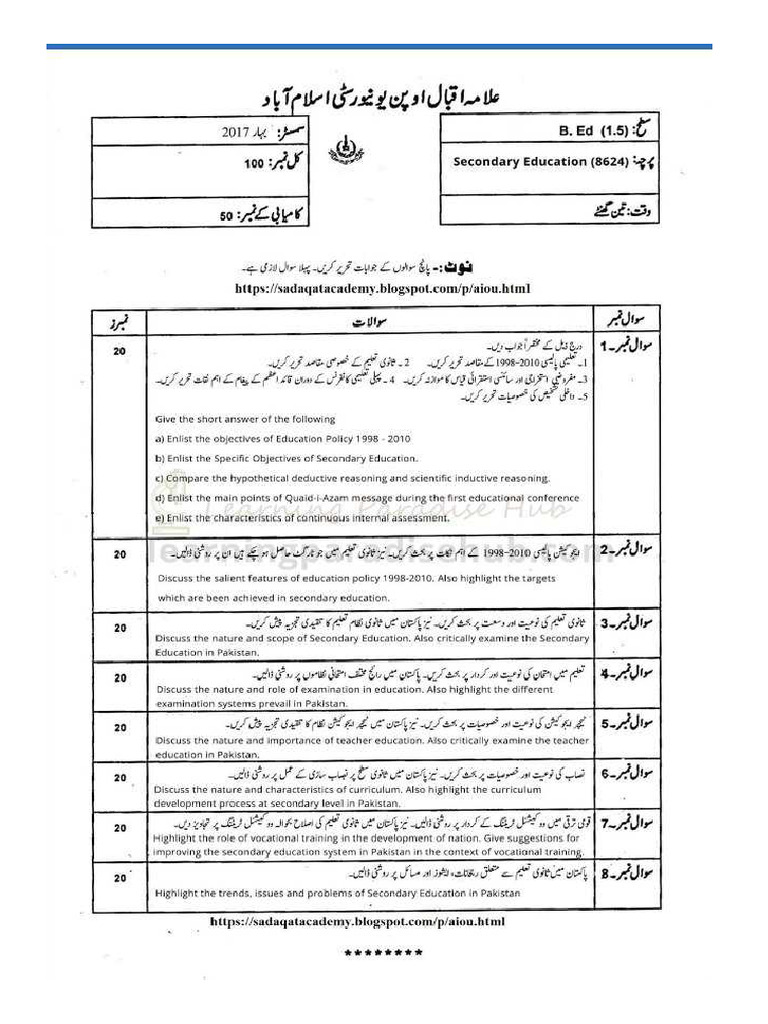 علامہ اقبال اوپن یونیورسٹی اسلام آباد
سطح: B. Ed (1.5)
پرچہ: Secondary Education (8624)
وقت: تین گھنٹے
سمسٹر: بہار 2017
کل نمبر: 100
کامیابی کے نمبر: 50
نوٹ:- پانچ سوالوں کے جوابات تحریر کریں۔ پہلا سوال لازمی ہے۔
https://sadaqatacademy.blogspot.com/p/aiou.html
سوال نمبر سوالات نمبرز
سوال نمبر۔1 درج ذیل کے مختصراً جواب دیں۔ 20
1۔ تعلیمی پالیسی 2010-1998 کے مقاصد تحریر کریں۔ 2۔ ثانوی تعلیم کے خصوصی مقاصد تحریر کریں۔
3۔ مفروضی استخراجی اور سائنسی استقرائی قیاس کا موازنہ کریں۔ 4۔ پہلی تعلیمی کانفرنس کے دوران قائد اعظم کے پیغام کے اہم نکات تحریر کریں۔
5۔ داخلی تشخیص کی خصوصیات تحریر کریں۔
Give the short answer of the following
a) Enlist the objectives of Education Policy 1998 - 2010
b) Enlist the Specific Objectives of Secondary Education.
c) Compare the hypothetical deductive reasoning and scientific inductive reasoning.
d) Enlist the main points of Quaid-i-Azam message during the first educational conference
e) Enlist the characteristics of continuous internal assessment.
Learning Paradise Hub
learningparadisehub.com
سوال نمبر۔2 ایجوکیشن پالیسی 2010-1998 کے اہم نکات پر بحث کریں۔ نیز ثانوی تعلیم میں جو ٹارگٹ حاصل ہو چکے ہیں ان پر روشنی ڈالیں۔ 20
Discuss the salient features of education policy 1998-2010. Also highlight the targets
which are been achieved in secondary education.
سوال نمبر۔3 ثانوی تعلیم کی نوعیت اور وسعت پر بحث کریں۔ نیز پاکستان میں ثانوی نظام تعلیم کا تنقیدی تجزیہ پیش کریں۔ 20
Discuss the nature and scope of Secondary Education. Also critically examine the Secondary
Education in Pakistan.
سوال نمبر۔4 تعلیم میں امتحان کی نوعیت اور کردار پر بحث کریں۔ پاکستان میں رائج مختلف امتحانی نظاموں پر روشنی ڈالیں۔ 20
Discuss the nature and role of examination in education. Also highlight the different
examination systems prevail in Pakistan.
سوال نمبر۔5 ٹیچر ایجوکیشن کی نوعیت اور خصوصیات پر بحث کریں۔ نیز پاکستان میں ٹیچر ایجوکیشن نظام کا تنقیدی تجزیہ پیش کریں۔ 20
Discuss the nature and importance of teacher education. Also critically examine the teacher
education in Pakistan.
سوال نمبر۔6 نصاب کی نوعیت اور خصوصیات پر بحث کریں۔ نیز پاکستان میں ثانوی سطح پر نصاب سازی کے عمل پر روشنی ڈالیں۔ 20
Discuss the nature and characteristics of curriculum. Also highlight the curriculum
development process at secondary level in Pakistan.
سوال نمبر۔7 قومی ترقی میں ووکیشنل ٹریننگ کے کردار پر روشنی ڈالیں۔ نیز پاکستان میں ثانوی تعلیم کی اصلاح بحوالہ ووکیشنل ٹریننگ پر تجاویز دیں۔ 20
Highlight the role of vocational training in the development of nation. Give suggestions for
improving the secondary education system in Pakistan in the context of vocational training.
سوال نمبر۔8 پاکستان میں ثانوی تعلیم سے متعلق رجحانات، ایشوز اور مسائل پر روشنی ڈالیں۔ 20
Highlight the trends, issues and problems of Secondary Education in Pakistan
https://sadaqatacademy.blogspot.com/p/aiou.html
********